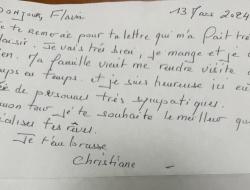 Bonjour Flavie 13 Mars 2024
te remercie pour ta lettre qui m'a fait trè
plaisir. Je vais très bien, je mange et je
en. Ma famille vient me rendre visite
mps en temps. et je suis heureuse ici e
ée de personnes très sympatiques.
mon tour je te souhaite le meilleur q
éalises tes rêves.
Je t'embrasse
Christiane